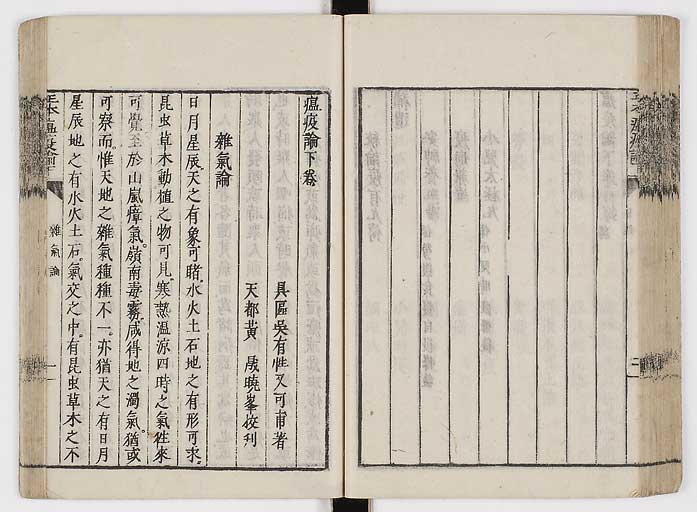 瘟疫論下卷
具區吳有性又可甫著
天都黃晟曉峯校刊
雜氣論
日月星辰天之有象可睹水火土石地之有形可求
昆虫草木動植之物可見寒熱温涼四時之氣徃來
可覺至於山嵐瘴氣嶺南毒霧咸得地之濁氣猶或
可察而惟天地之雜氣種種不一亦猶天之有日月
星辰地之有水火土石氣交之中有昆虫草木之不
雜氣論
一